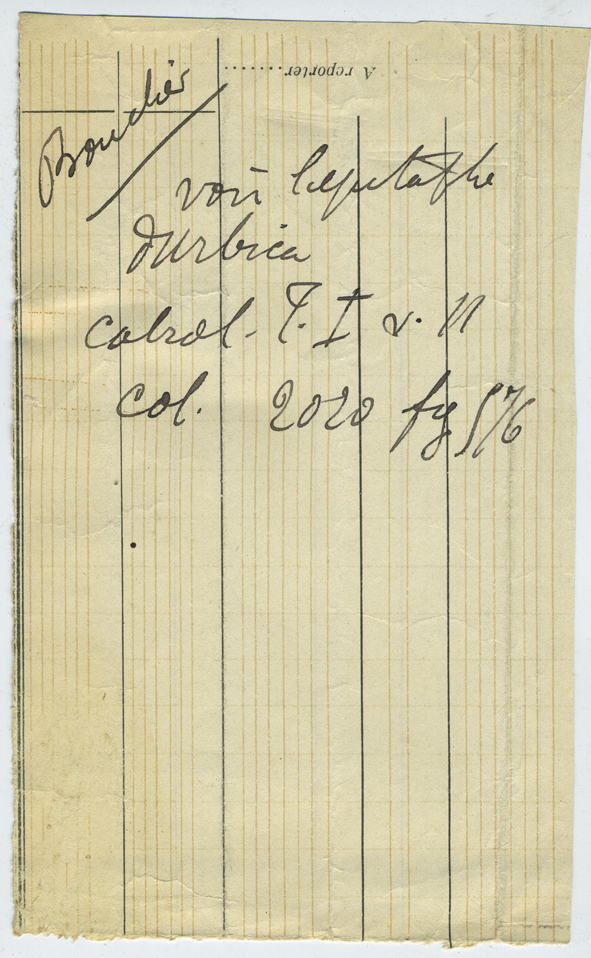 A reporter........
Bouclier
voir l'epitaphe
d'Urbica
Cabrol. T. I v. II
col. 2020 fg 576